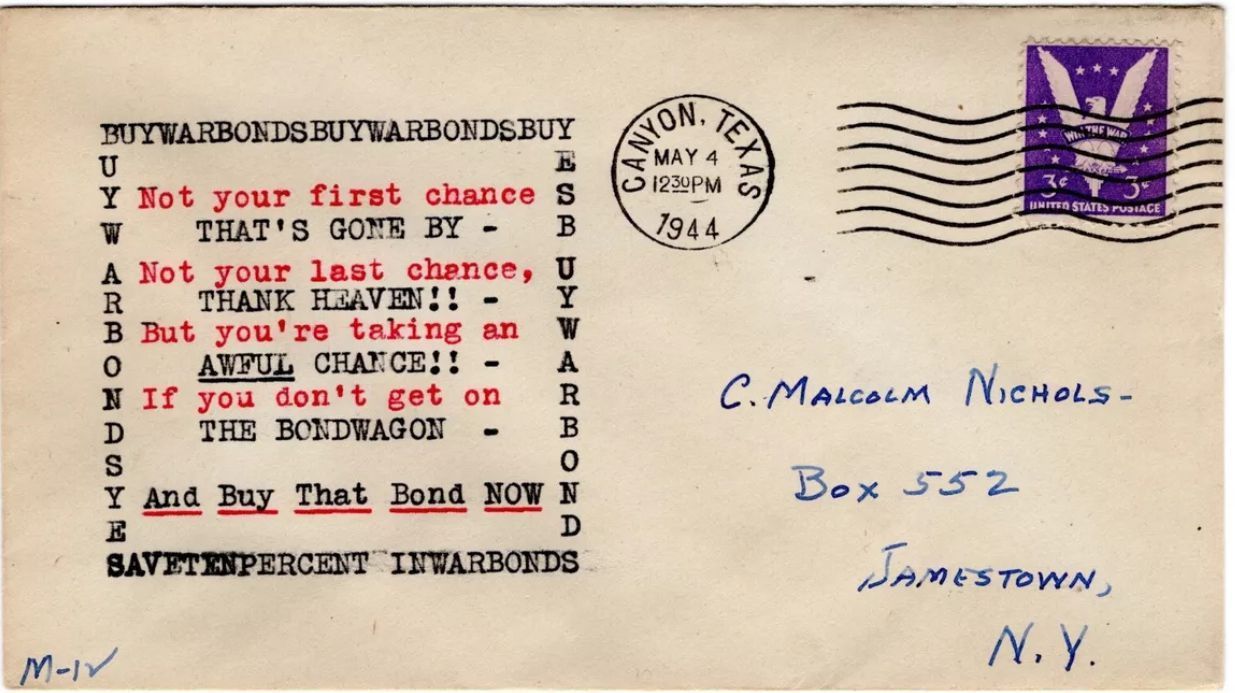 BUYWARBONDSBUYWARBONDSBUY
UYWARBONDSYE
Not your first chance
THAT'S GONE BY -
Not your last chance,
THANK HEAVEN!! -
But you're taking an
AWFUL CHANCE!! -
If you don't get on
THE BONDWAGON -
And Buy That Bond NOW
ESBUYWARBOND
SAVETENPERCENT INWARBONDS
CANYON, TEXAS
MAY 4
1230PM
1944
WIN THE WAR
3¢ 3¢
UNITED STATES POSTAGE
C. MALCOLM NICHOLS-
BOX 552
JAMESTOWN,
N.Y.